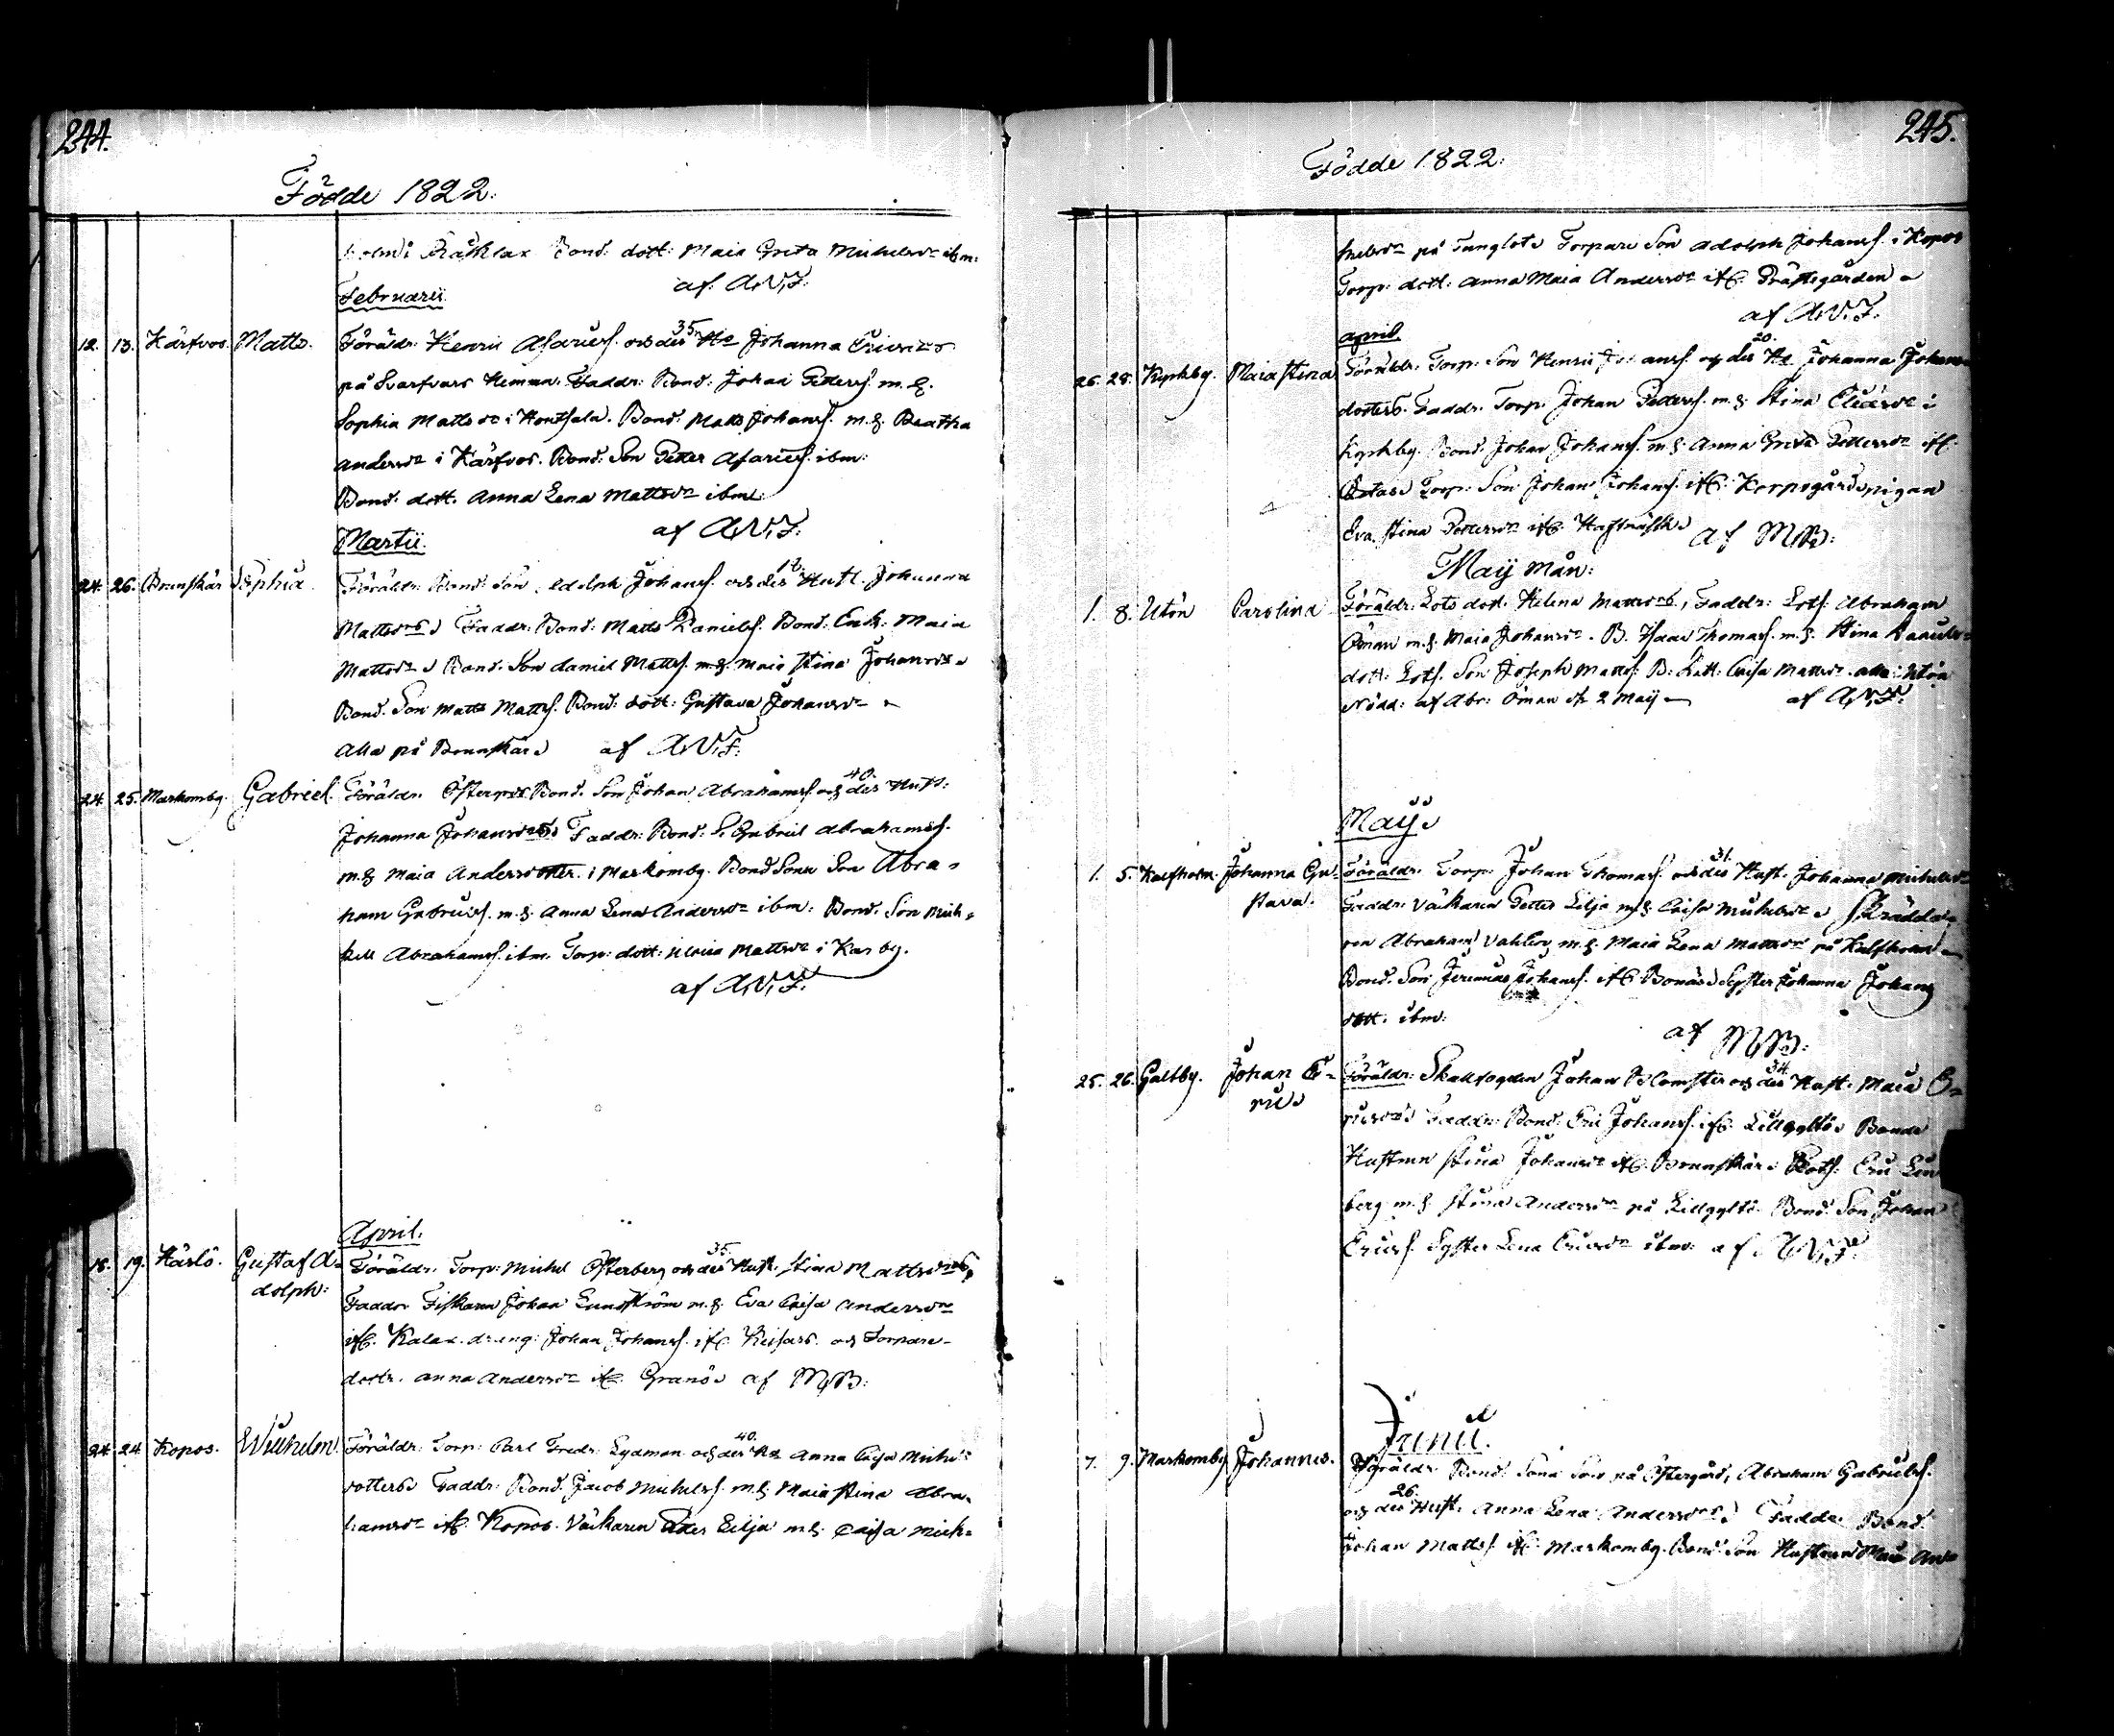 244.
Födde 1822:
Bond: dott: Maia Greta Michelsdr ibm:
af A.W.F:
Februarii
12. 13. Kärfvos. Matts. Föräldr. Henric Asariess. och des 35 Ha Johanna Ericsdrs
på Svarfvars Hemman. Faddr: Bond: Johan Petterss. m. h.
Sophia Mattsdr i Hontsala. Bond: Matts Johanss. m. h. Beatha
Andersdr i Kärfvos. Bond: Son Petter Asariess. ibm:
Bond. dott. Anna Lena Mattsdr ibm:
af A.W.F.
Martii.
24. 26. Brunskär Sophia. Föräldr. Bond: Son Adolph Johanss. och des Hust. Johanna
Mattsdrs Faddr: Bond: Matts Daniels. Bond: Enk: Maia
Mattsdr Bond. Son Daniel Mattss. m. h. Maia Stina Johansdr
Bond. Son Matts Mattss. Bond: dott: Gustava Johansdr
Alla på Brunskär af A.W.F:
24. 25. Markomby. Gabriel. Föräldr. Östergårds Bond. Son Johan Abrahamss. och des 40. Hust:
Johanna Johansdrs Faddr: Bond: S. Gabriel Abrahamss.
m. h. Maia Andersdotter. i Markomby. Bond Sons Son Abra-
ham Gabrielss. m. h. Anna Lena Andersdr ibm: Bond. Son Mich-
kell Abrahamss. ibm. Torp: dott: Maria Mattsdr i Karby.
af A.W.F.
April.
18. 19. Kärlö. Gustaf A- Föräldr. Torp: Michel Österberg och des 35 Hust. Stina Mattsdrs,
dolph: Faddr Fiskaren Johan Lundström m. h. Eva Caisa Andersdr
ifr. Kalax. dreng: Johan Johanss. ifr. Keisars. och Torpare-
dottr. Anna Andersdr ifr. Granö af MB:
24. 24. Kopos. Wilhelm. Föräldr: Torp: Carl Fredr: Lydman och des 40. Ha Anna Caisa Michels
dotters Faddr: Bond. Jacob Michelss. m. h. Maia Stina Abra-
hamsdr ifr. Kopos. Väskaren Petter Lilja m. h. Caisa Mich-
245.
Födde 1822:
helsdr på Tunglots Torpare Son Adolph Johanss. i Kopos
Torp: dott. Anna Maia Andersdr ifr. Prästgården
af A.W.F.
April.
26. 28. Kyrkby. Maia Stina Föräldr: Torp: Son Henric Johanss. och des 20. Ha Johanna Johans
dotters. Faddr. Torp. Johan Petterss. m. h. Stina Eliasdr i
Kyrkby. Bond. Johan Johanss. m. h. Anna Greta Pettersdr ifr.
Retais Torp: Son Johan Johanss. ifr. Korpogårds pigan
Eva Stina Pettersdr ifr. Hafträsk af MB:
Maij Mån:
1. 8. Utön Carolina Föräldr: Lots dott. Helena Mattsdrs, Faddr: Lots: Abraham
Öman m. h. Maia Johansdr. B. Isaac Thomass. m. h. Stina
dott: Lots. Son Joseph Mattss. B: dott: Caisa Mattsdr. alla: Utön
Nöd: af Abr: Öman d. 2 Maij af A.W.F:
Maij
1. 5. Kalfholm. Johanna Gu- Föräldr. Torp: Johan Thomass. och des 31. Hust. Johanna Michelsdr
stava. Faddr. Väskaren Petter Lilja m. h. Caisa Michelsdr Skrädda-
ren Abraham Vahlberg m. h. Maia Lena Mattsdr på Kalfholm
Bond. Son Jeremias Johanss. ifr. Bonäs Syster Johanna Johans
dott. ibm:
af MB:
25. 26. Galtby. Johan E- Föräldr: Skallfogden Johan Blomster och des 34. Hust. Maia E-
ric ricsdrs Faddr: Bond: Eric Johanss. ifr. Lillgyltö Bonde
Hustrun Stina Johansdr ifr. Brunskär Båts. Eric Lin
berg m. h. Stina Andersdr på Lillgyltö. Bond. Son Johan
Ericss. Syster Lena Ericsdr ibm: af A.W.F.
Junii.
7. 9. Markomby Johannes. Föräldr Bond: Sons Son på Östergård, Abraham Gabrielss.
och des 26. Hust. Anna Lena Andersdrs Faddr. Bond.
Johan Mattss. ifr. Markomby. Bond. Son Hustrun Maia And